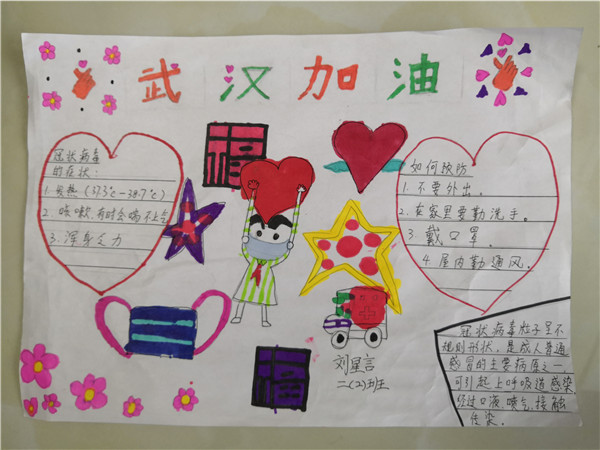 武汉加油
福
冠状病毒
的症状:
1.发热(37.3℃-38.7℃)
2.咳嗽,有时会喘不上气
3.浑身乏力
如何预防
1.不要外出。
2.在家里要勤洗手。
3.戴口罩。
4.屋内勤通风。
刘星言
二(2)班
冠状病毒粒子呈不
规则形状,是成人普通
感冒的主要病原之一,
可引起上呼吸道感染,
经过口液、喷气、接触
传染。